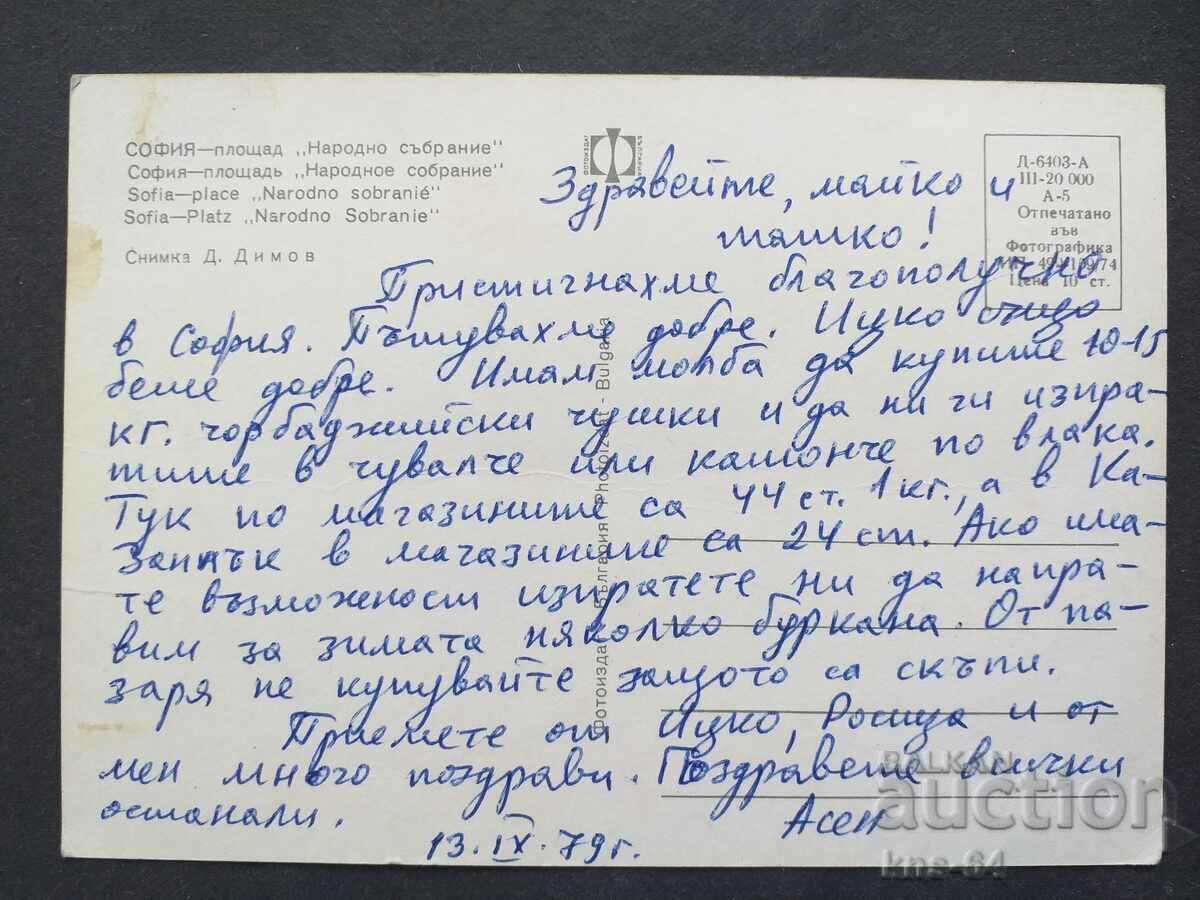 СОФИЯ—площад „Народно събрание"
София—площадь „Народное собрание"
Sofia—place „Narodno sobranié"
Sofia—Platz „Narodno Sobranie"
Снимка Д. Димов
ФОТОИЗДАТ
БЪЛГАРИЯ
Д-6403-А
III-20 000
А-5
Отпечатано
във
Фотографика
Цена 10 ст.
Фотоиздат България Photoizdat - Bulgaria
Здравейте, майко и
татко!
Пристигнахме благополучно
в София. Пътувахме добре. Ицко също
беше добре. Имам молба да купите 10-15
кг. чорбаджийски чушки и да ни ги изпра-
тите в чувалче или кашонче по влака.
Тук по магазините са 44 ст. 1 кг., а в Ка-
занлък в магазините са 24 ст. Ако има-
те възможност изпратете ни да напра-
вим за зимата няколко буркана. От па-
заря не купувайте защото са скъпи.
Приемете от Ицко, Росица и от
мен много поздрави. Поздравете всички
останали.
Асен
13.IX.79г.
BALKAN
auction
kns-64